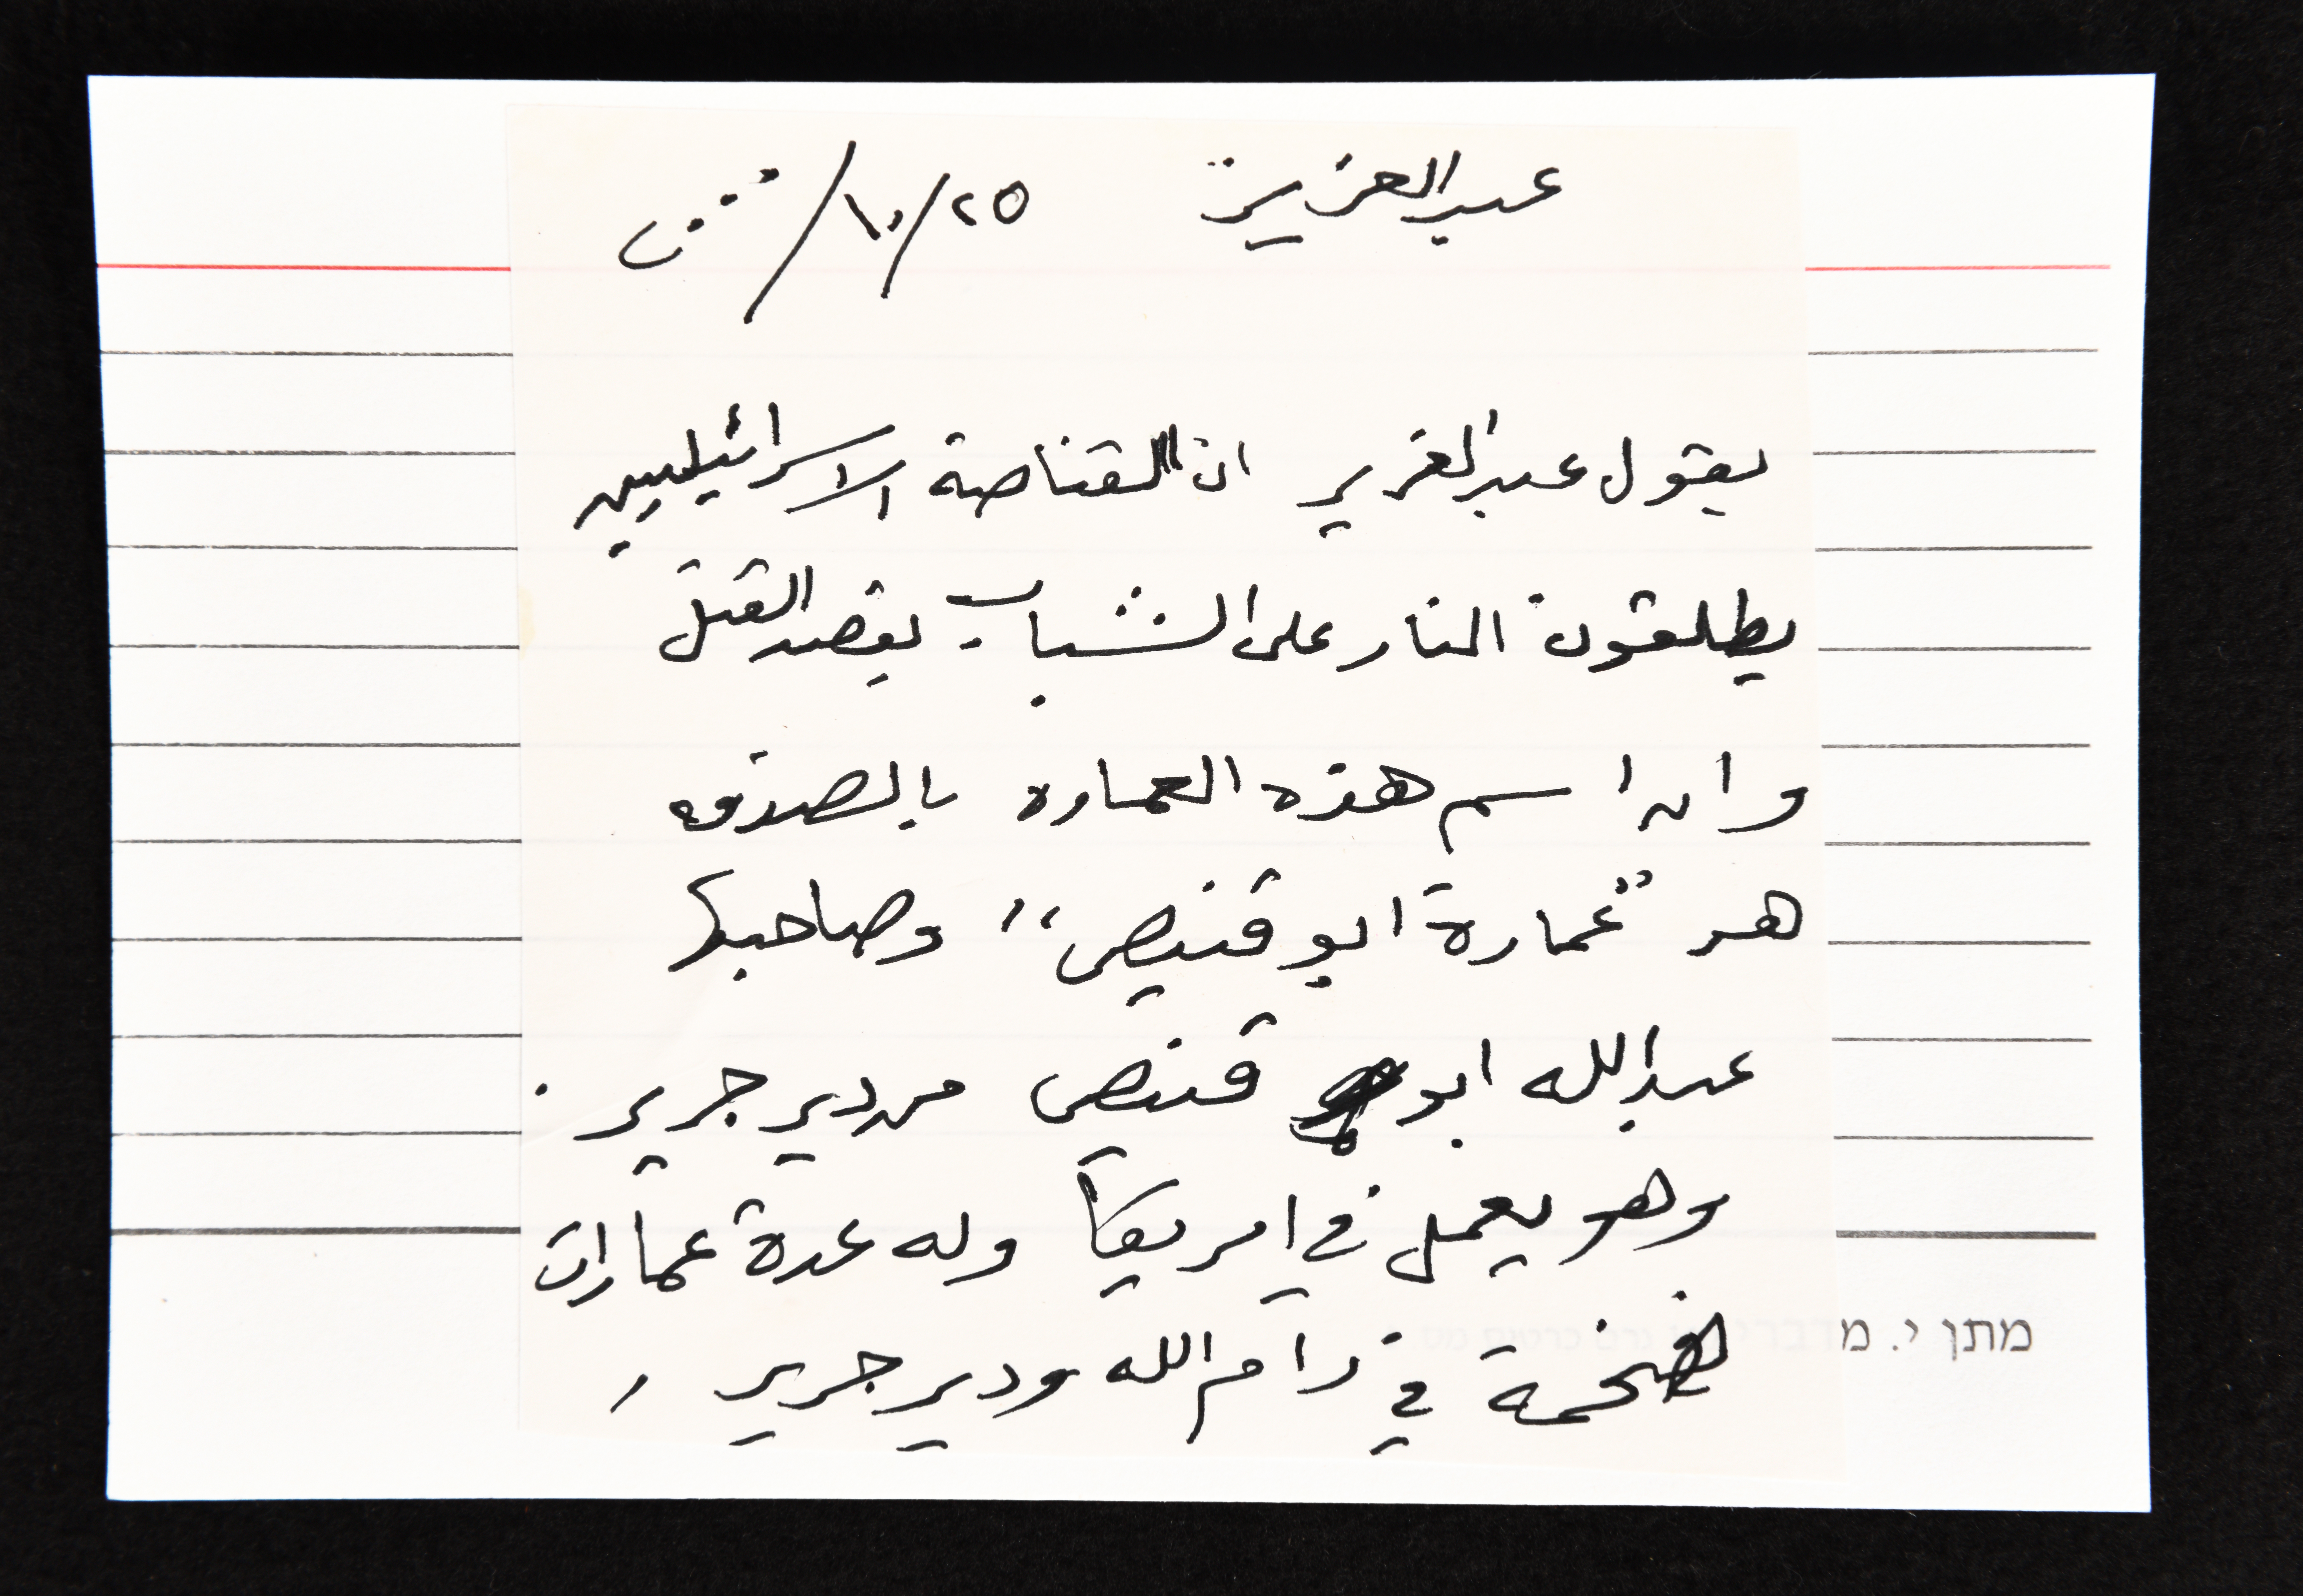 عبد العزيز ٢٥/١٠/٢٠٠٠
يقول عبد العزيز ان القناصة الاسرائيليين
يطلقون النار على الشباب بقصد القتل
وان اسم هذه العماره بالصدفه
هو "عمارة ابو قنيص" وصاحبها
عبدالله ابو قنيص من دير جرير .
وهو يعمل في امريكا وله عدة عمارات
ضخمة في رام الله ودير جرير ,
מתן י. מ